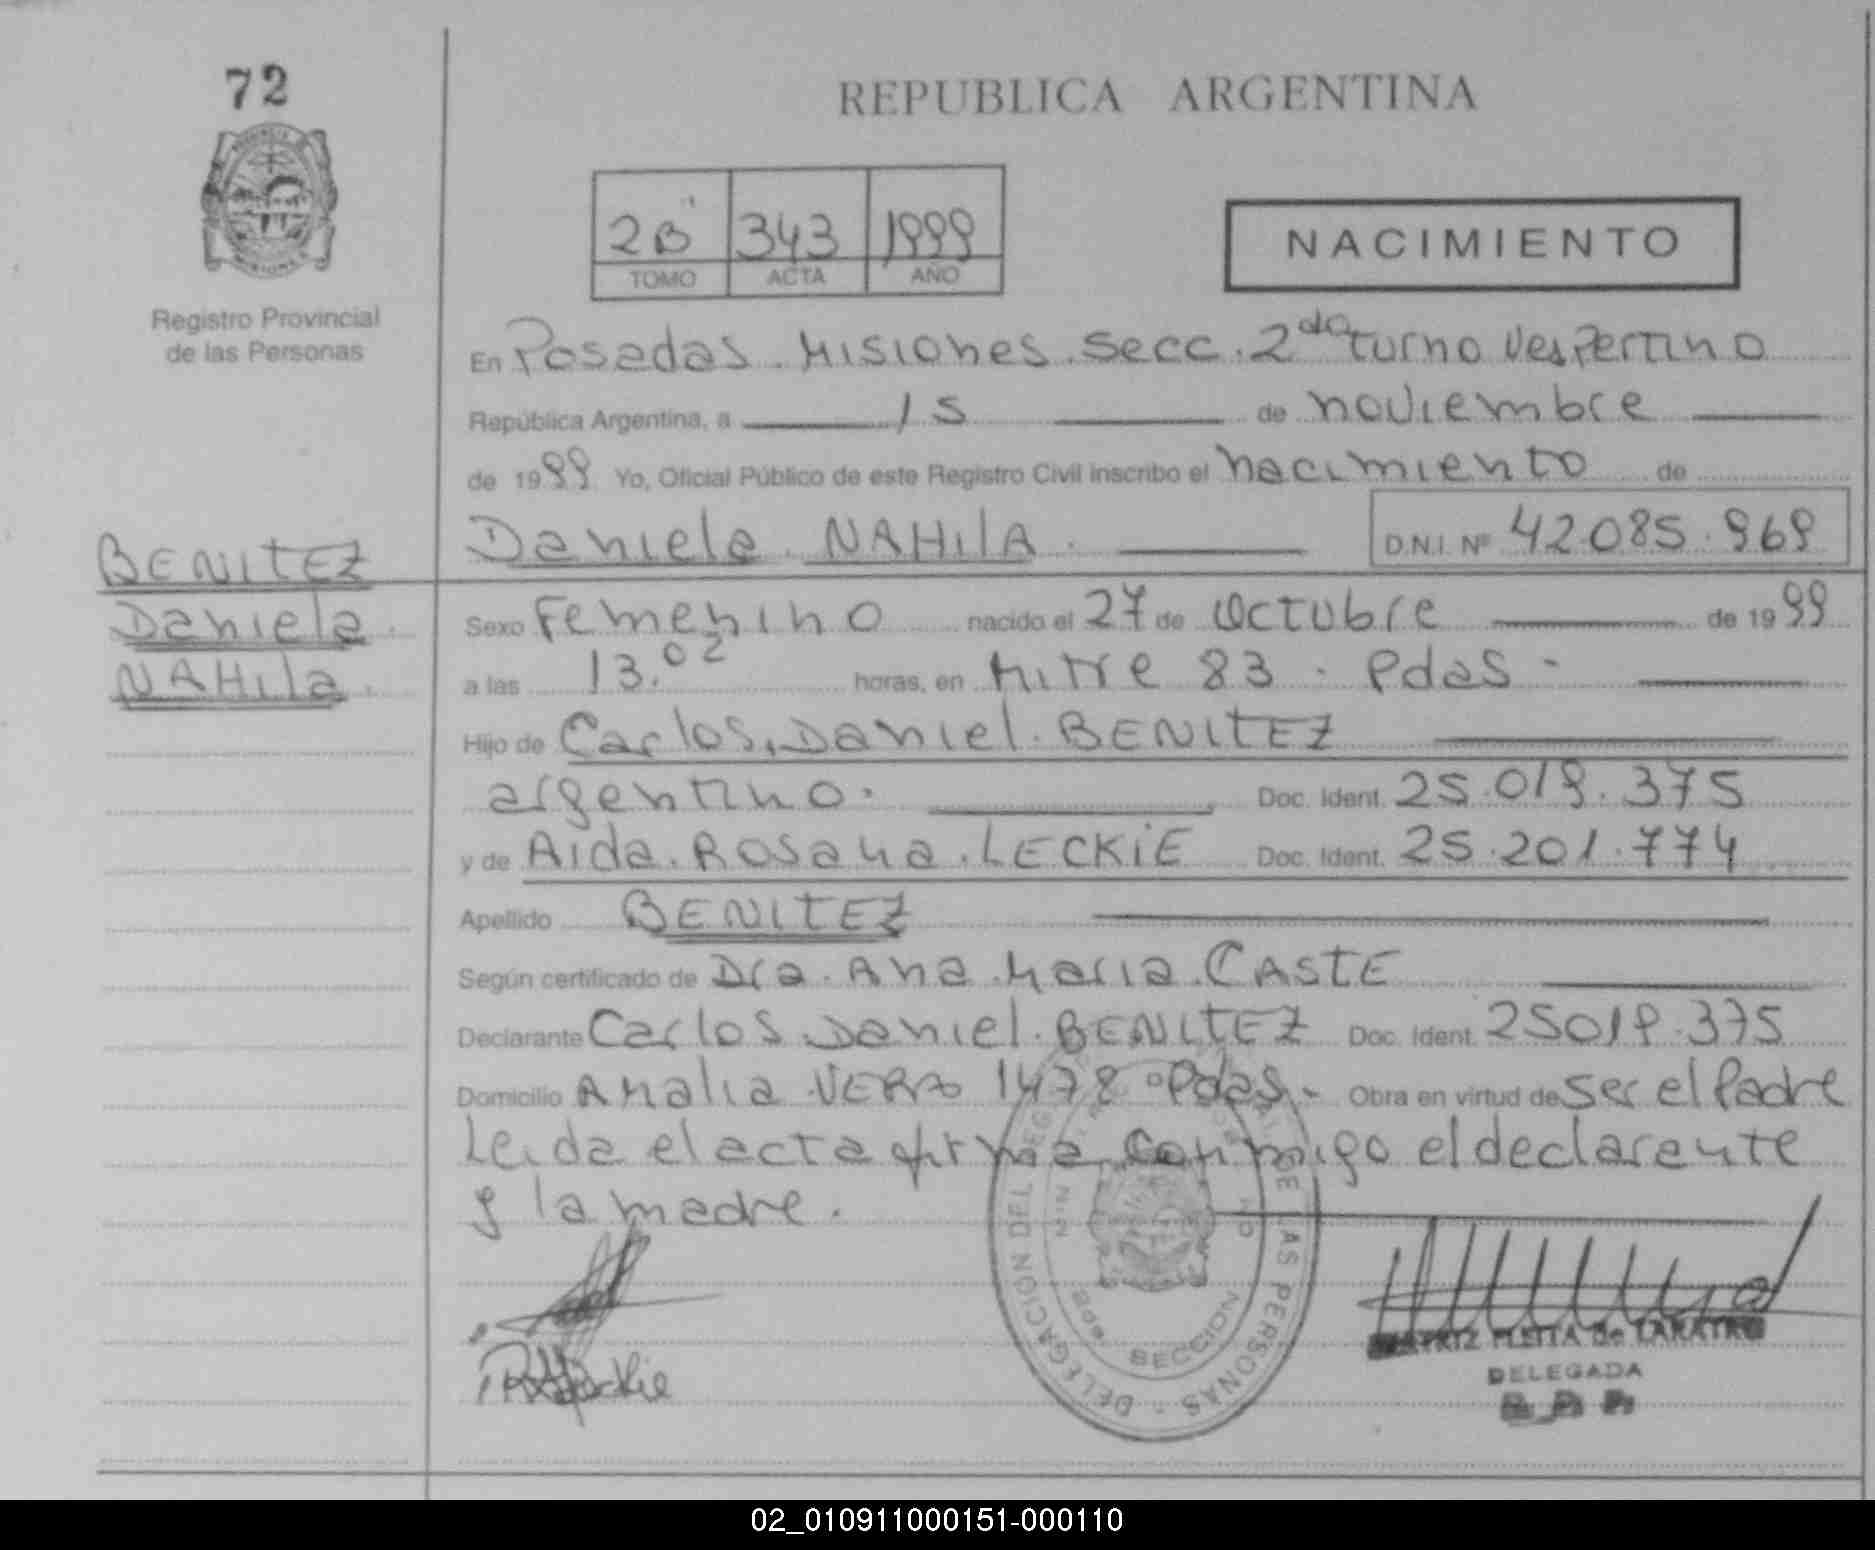 72
REPUBLICA ARGENTINA
2B 343 1999
TOMO ACTA AÑO
NACIMIENTO
Registro Provincial
de las Personas
En Posadas. Misiones. Secc. 2da turno Vespertino
República Argentina, a 15 de noviembre
de 1999 Yo, Oficial Público de este Registro Civil inscribo el nacimiento de
Daniela NAHilA. D.N.I. Nº 42085.969
BENITEZ
Daniela
NAHila.
Sexo Femenino nacido el 27 de Octubre de 1999
a las 13.02 horas, en Mitre 83 . Pdas -
Hijo de Carlos, Daniel. BENITEZ
argentino. Doc. Ident. 25.019.375
y de Aida. Rosana. LECKiE Doc. Ident. 25.201.774
Apellido BENITEZ
Según certificado de Dra. Ana. Maria. CASTE
Declarante Carlos. Daniel. BENITEZ Doc. Ident. 25019.375
Domicilio Amalia VERA 1478 Pdas - Obra en virtud de Ser el Padre
Leida el acta firma conmigo el declarante
y la madre.
DELEGACION DEL REG DE LAS PERSONAS
SECCION
FLEITA de
DELEGADA
02_010911000151-000110